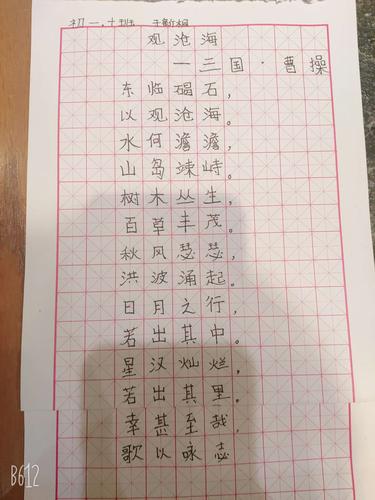 初一.十班
观沧海
一三国·曹操
东临碣石，
以观沧海。
水何澹澹，
山岛竦峙。
树木丛生，
百草丰茂。
秋风瑟瑟，
洪波涌起。
日月之行，
若出其中。
星汉灿烂，
若出其里。
幸甚至哉，
歌以咏志
B612